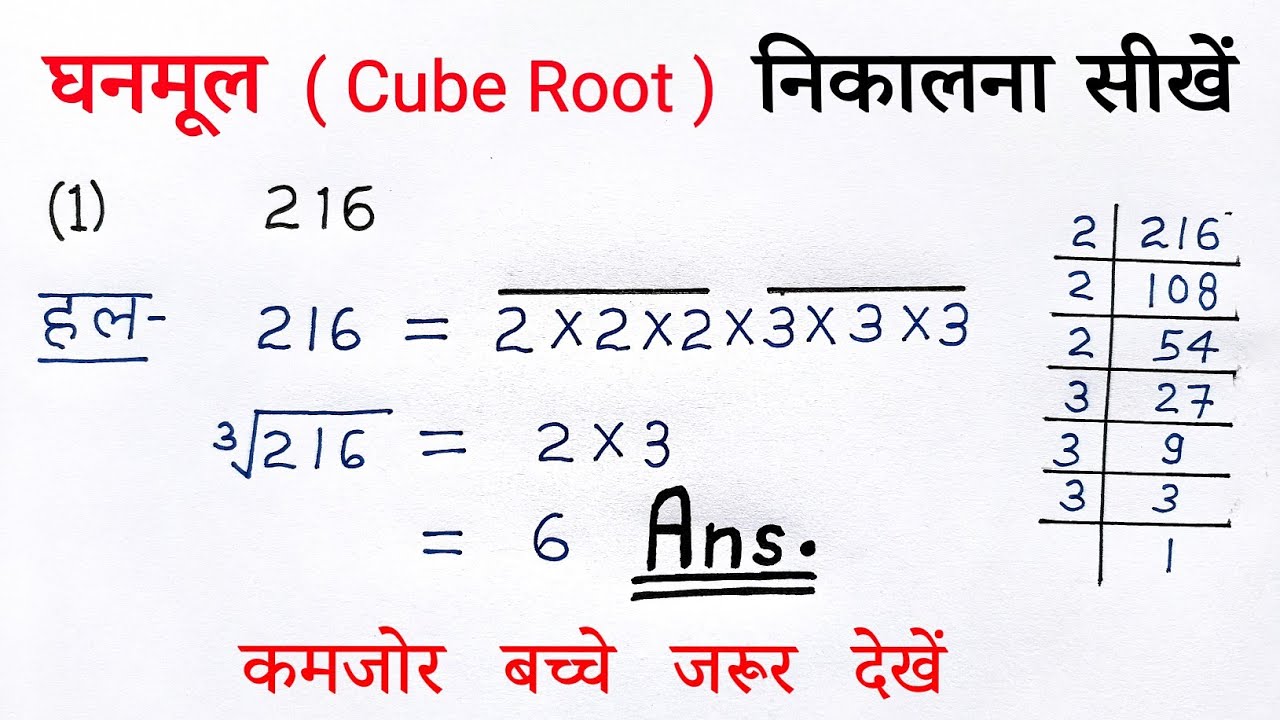 घनमूल ( Cube Root ) निकालना सीखें
(1) 216
हल- 216 = 2×2×2×3×3×3
∛216 = 2×3
= 6 Ans.
2 | 216
2 | 108
2 | 54
3 | 27
3 | 9
3 | 3
1
कमजोर बच्चे जरूर देखें